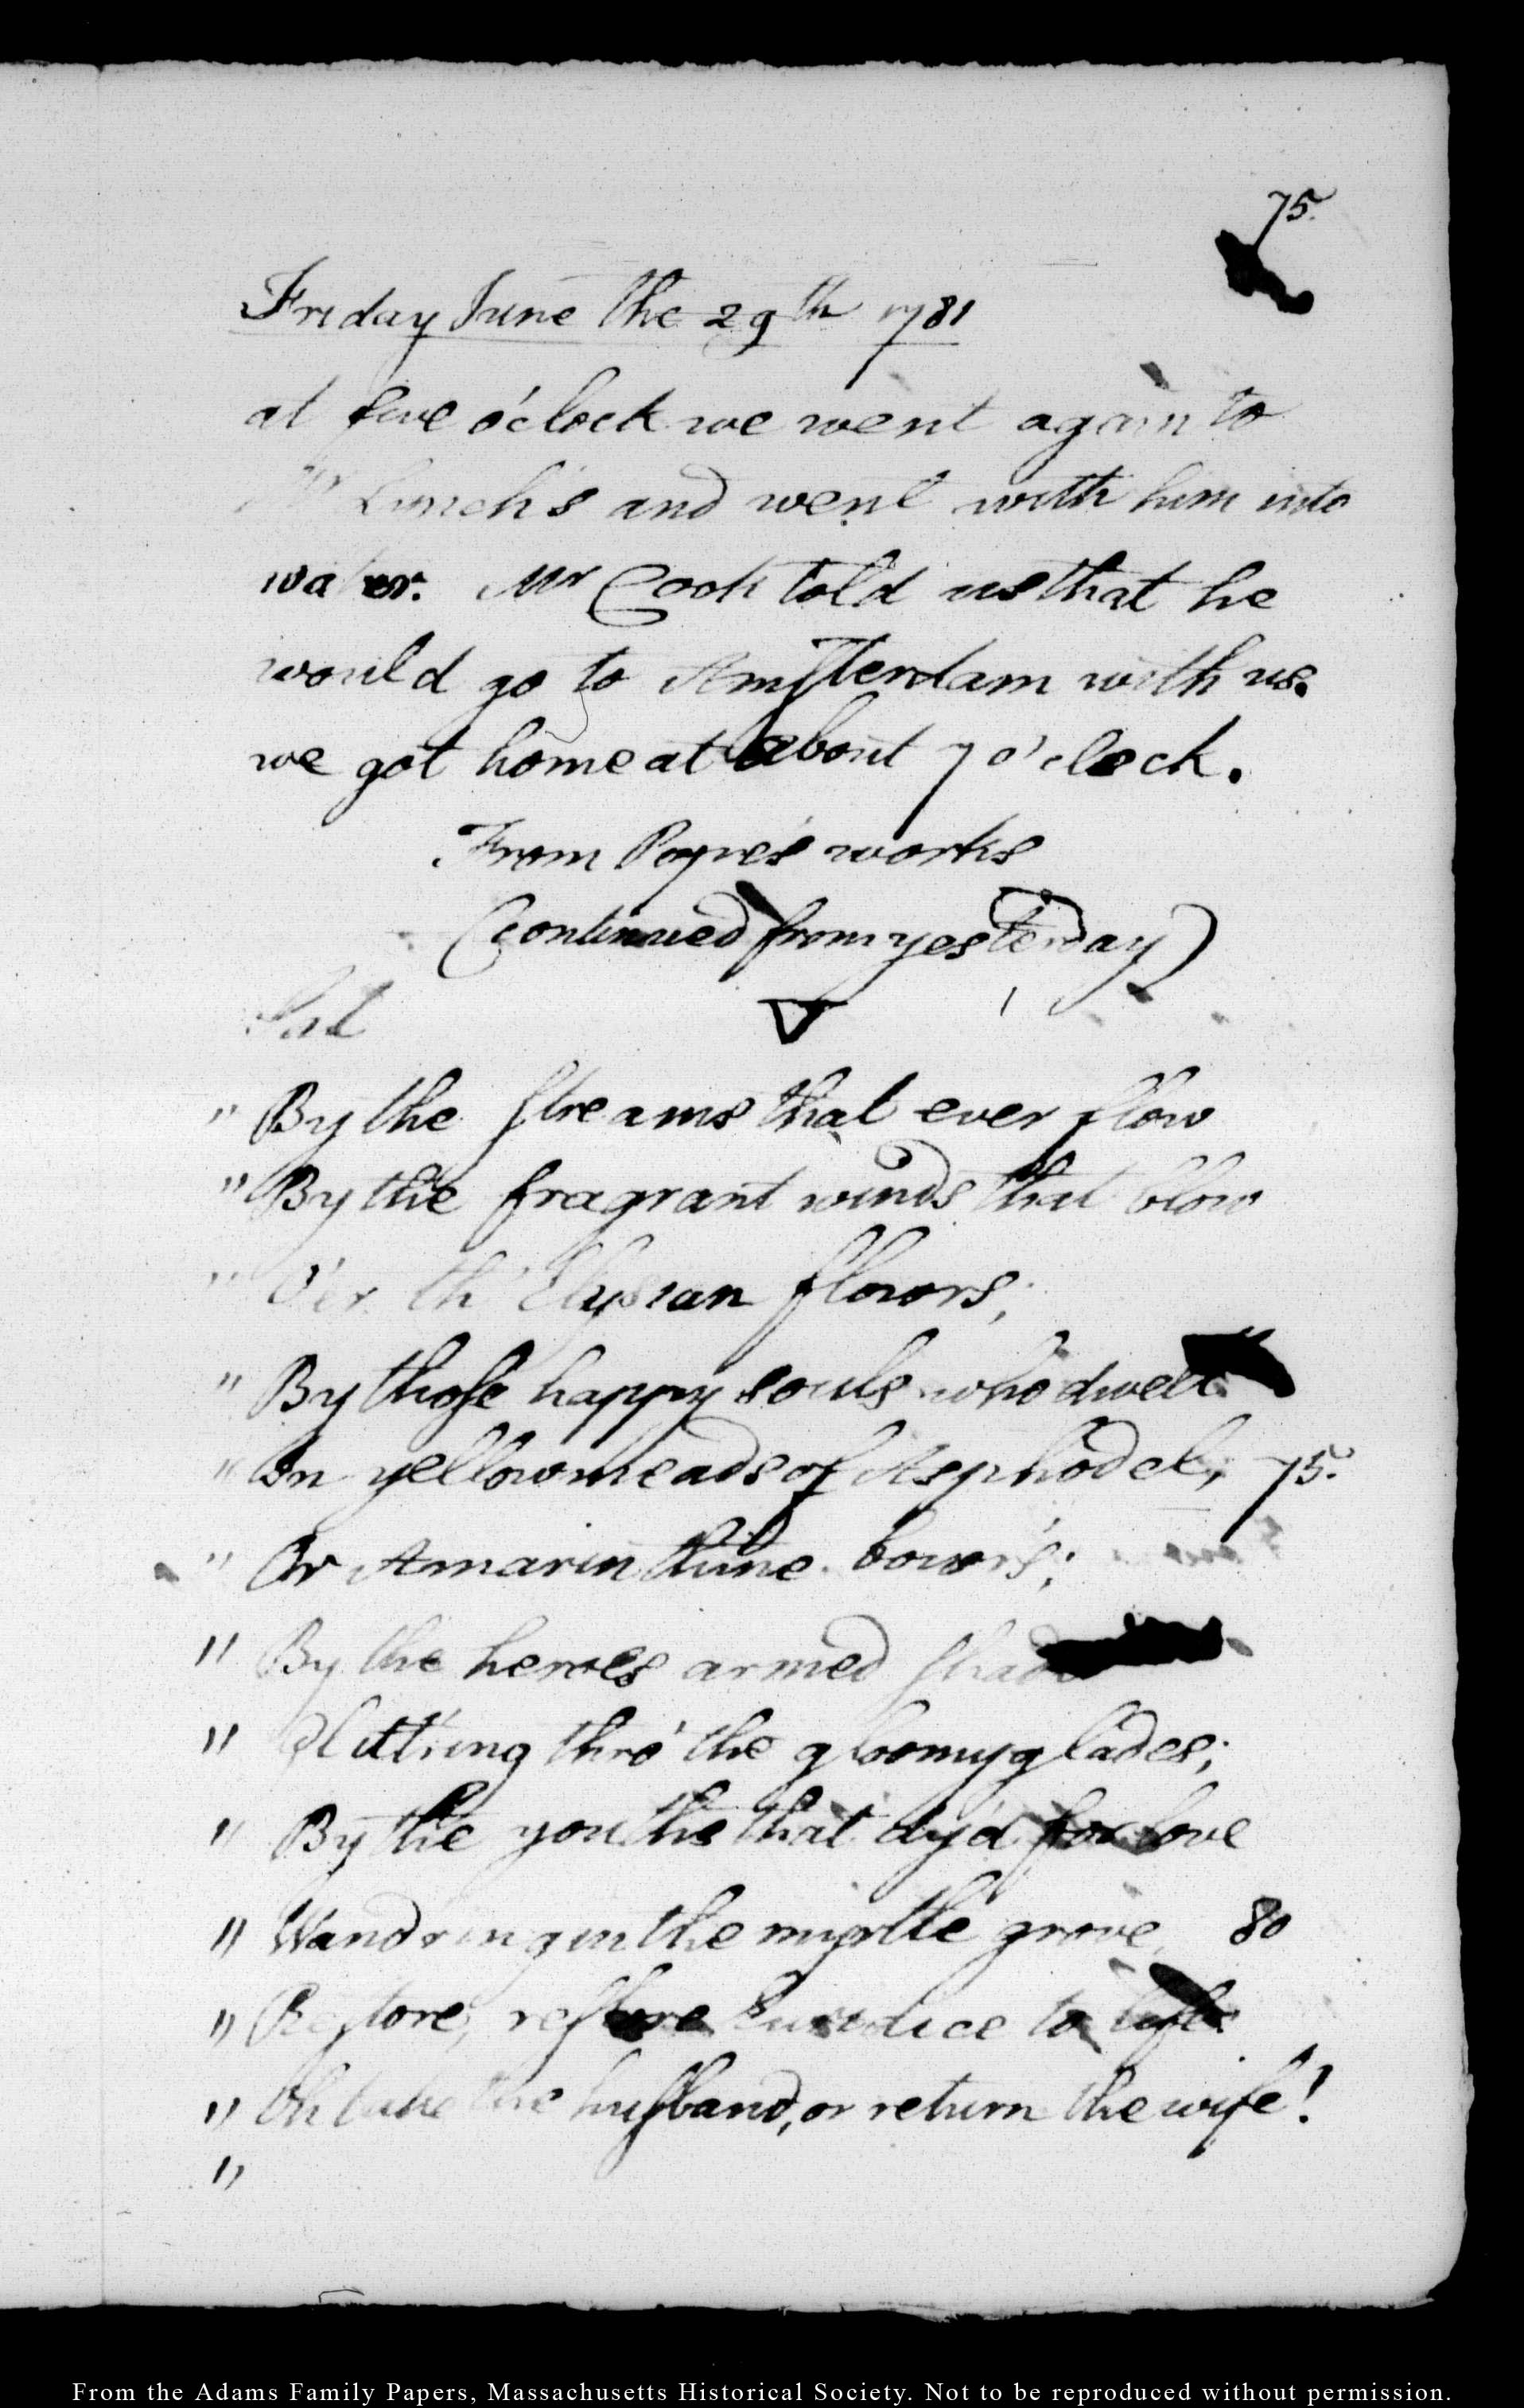 75.
Friday June the 29th 1781
at five o'clock we went again to
Mr Lynch's and went with him into
water. Mr Cook told us that he
would go to Amſterdam with us.
we got home at about 7 o'clock.
From Pope's works
(continued from yesterday)
" By the ſtreams that ever flow
" By the fragrant winds that blow
" O'er th' Elysian flowrs;
" By thoſe happy souls who dwell
" In yellow meads of Asphodel, 75.
" Or Amarinthine bow'rs;
" By the heroes armed ſhades
" Glitt'ring thro' the gloomy glades;
" By the youths that dy'd for love
" Wandring in the myrtle grove, 80
" Reſtore, reſtore Euridice to life
" Oh take the huſband, or return the wife!
"
From the Adams Family Papers, Massachusetts Historical Society. Not to be reproduced without permission.